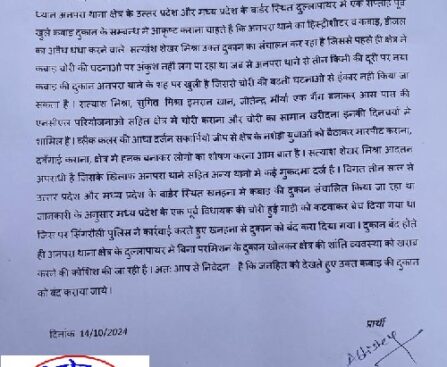 ध्यान अनपरा थाना क्षेत्र के उत्तर प्रदेश और मध्य प्रदेश के बार्डर स्थित दुल्लापाथर में एक सप्ताह पूर्व
खुले कबाड़ दुकान के सम्बन्ध में आकृष्ट कराना चाहते है कि अनपरा थाने का हिस्ट्रीशीटर व कबाड़, डीजल
का अवैध धंधा करने वाले सत्याश शेखर मिश्रा उक्त दुकान का संचालन कर रहा है जिससे पहले ही क्षेत्र मे
कबाड़ चोरी की घटनाओ पर अंकुश नही लग पा रहा था अब से अनपरा थाने से तीन किमी की दूरी पर नया
कबाड़ की दुकान अनपरा थाने के शह पर खुली है जिससे चोरी की बढती घटनाओं से इंकार नही किया जा
सकता है । सत्याश मिश्रा, सुमित मिश्रा इमरान खान, जीतेन्द्र मौर्या एक गैंग बनाकर आस पास की
एनसीएल परियोजनाओ सहित क्षेत्र में चोरी कराना और चोरी का सामान खरीदना इनकी दिनचर्या में
शामिल है। ब्लैक कलर की आधा दर्जन स्कार्पियो जीप से क्षेत्र के नशेड़ी युवाओं को बैठाकर मारपीट कराना,
दबंगई कराना, क्षेत्र में हनक बनाकर लोगों का शोषण करना आम बात है । सत्याश शेखर मिश्रा आदतन
अपराधी है जिसके खिलाफ अनपरा थाने सहित अन्य थानो में कई मुकदमा दर्ज है । विगत तीन साल से
उत्तर प्रदेश और मध्य प्रदेश के बार्डर स्थित खनहना मे कबाड़ की दुकान संचालित किया जा रहा था
जानकारी के अनुसार मध्य प्रदेश के एक पूर्व विधायक की चोरी हुई गाडी को कटवाकर बेच दिया गया था
जिस पर सिंगरौली पुलिस ने कार्रवाई करते हुए खनहना से दुकान को बंद करा दिया गया । दुकान बंद होते
ही अनपरा थाना क्षेत्र के दुल्लापाथर मे बिना परमिशन के दुकान खोलकर क्षेत्र की शांति व्यवस्था को खराब
करने की कोशिश की जा रही है । अतः आप से निवेदन है कि जनहित को देखते हुए उक्त कबाड़ की दुकान
को बंद कराया जाये ।
प्रार्थी
दिनांक 14/10/2024
Abhishey